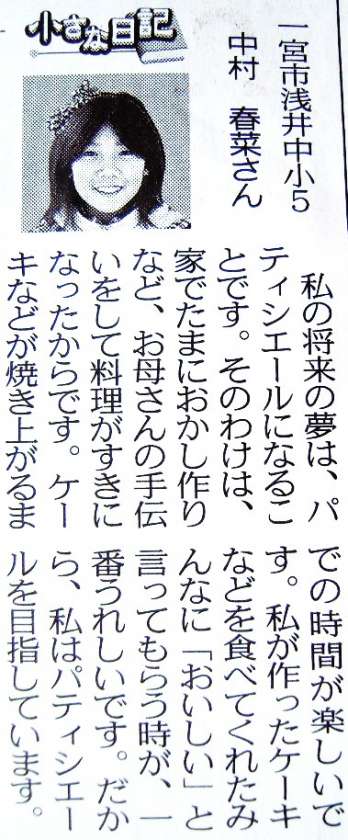 小さな日記
一宮市浅井中小5
中村 春菜さん
私の将来の夢は、パ
ティシエールになるこ
とです。そのわけは、
家でたまにおかし作り
など、お母さんの手伝
いをして料理がすきに
なったからです。ケー
キなどが焼き上がるま
での時間が楽しいで
す。私が作ったケーキ
などを食べてくれたみ
んなに「おいしい」と
言ってもらう時が、一
番うれしいです。だか
ら、私はパティシエー
ルを目指しています。